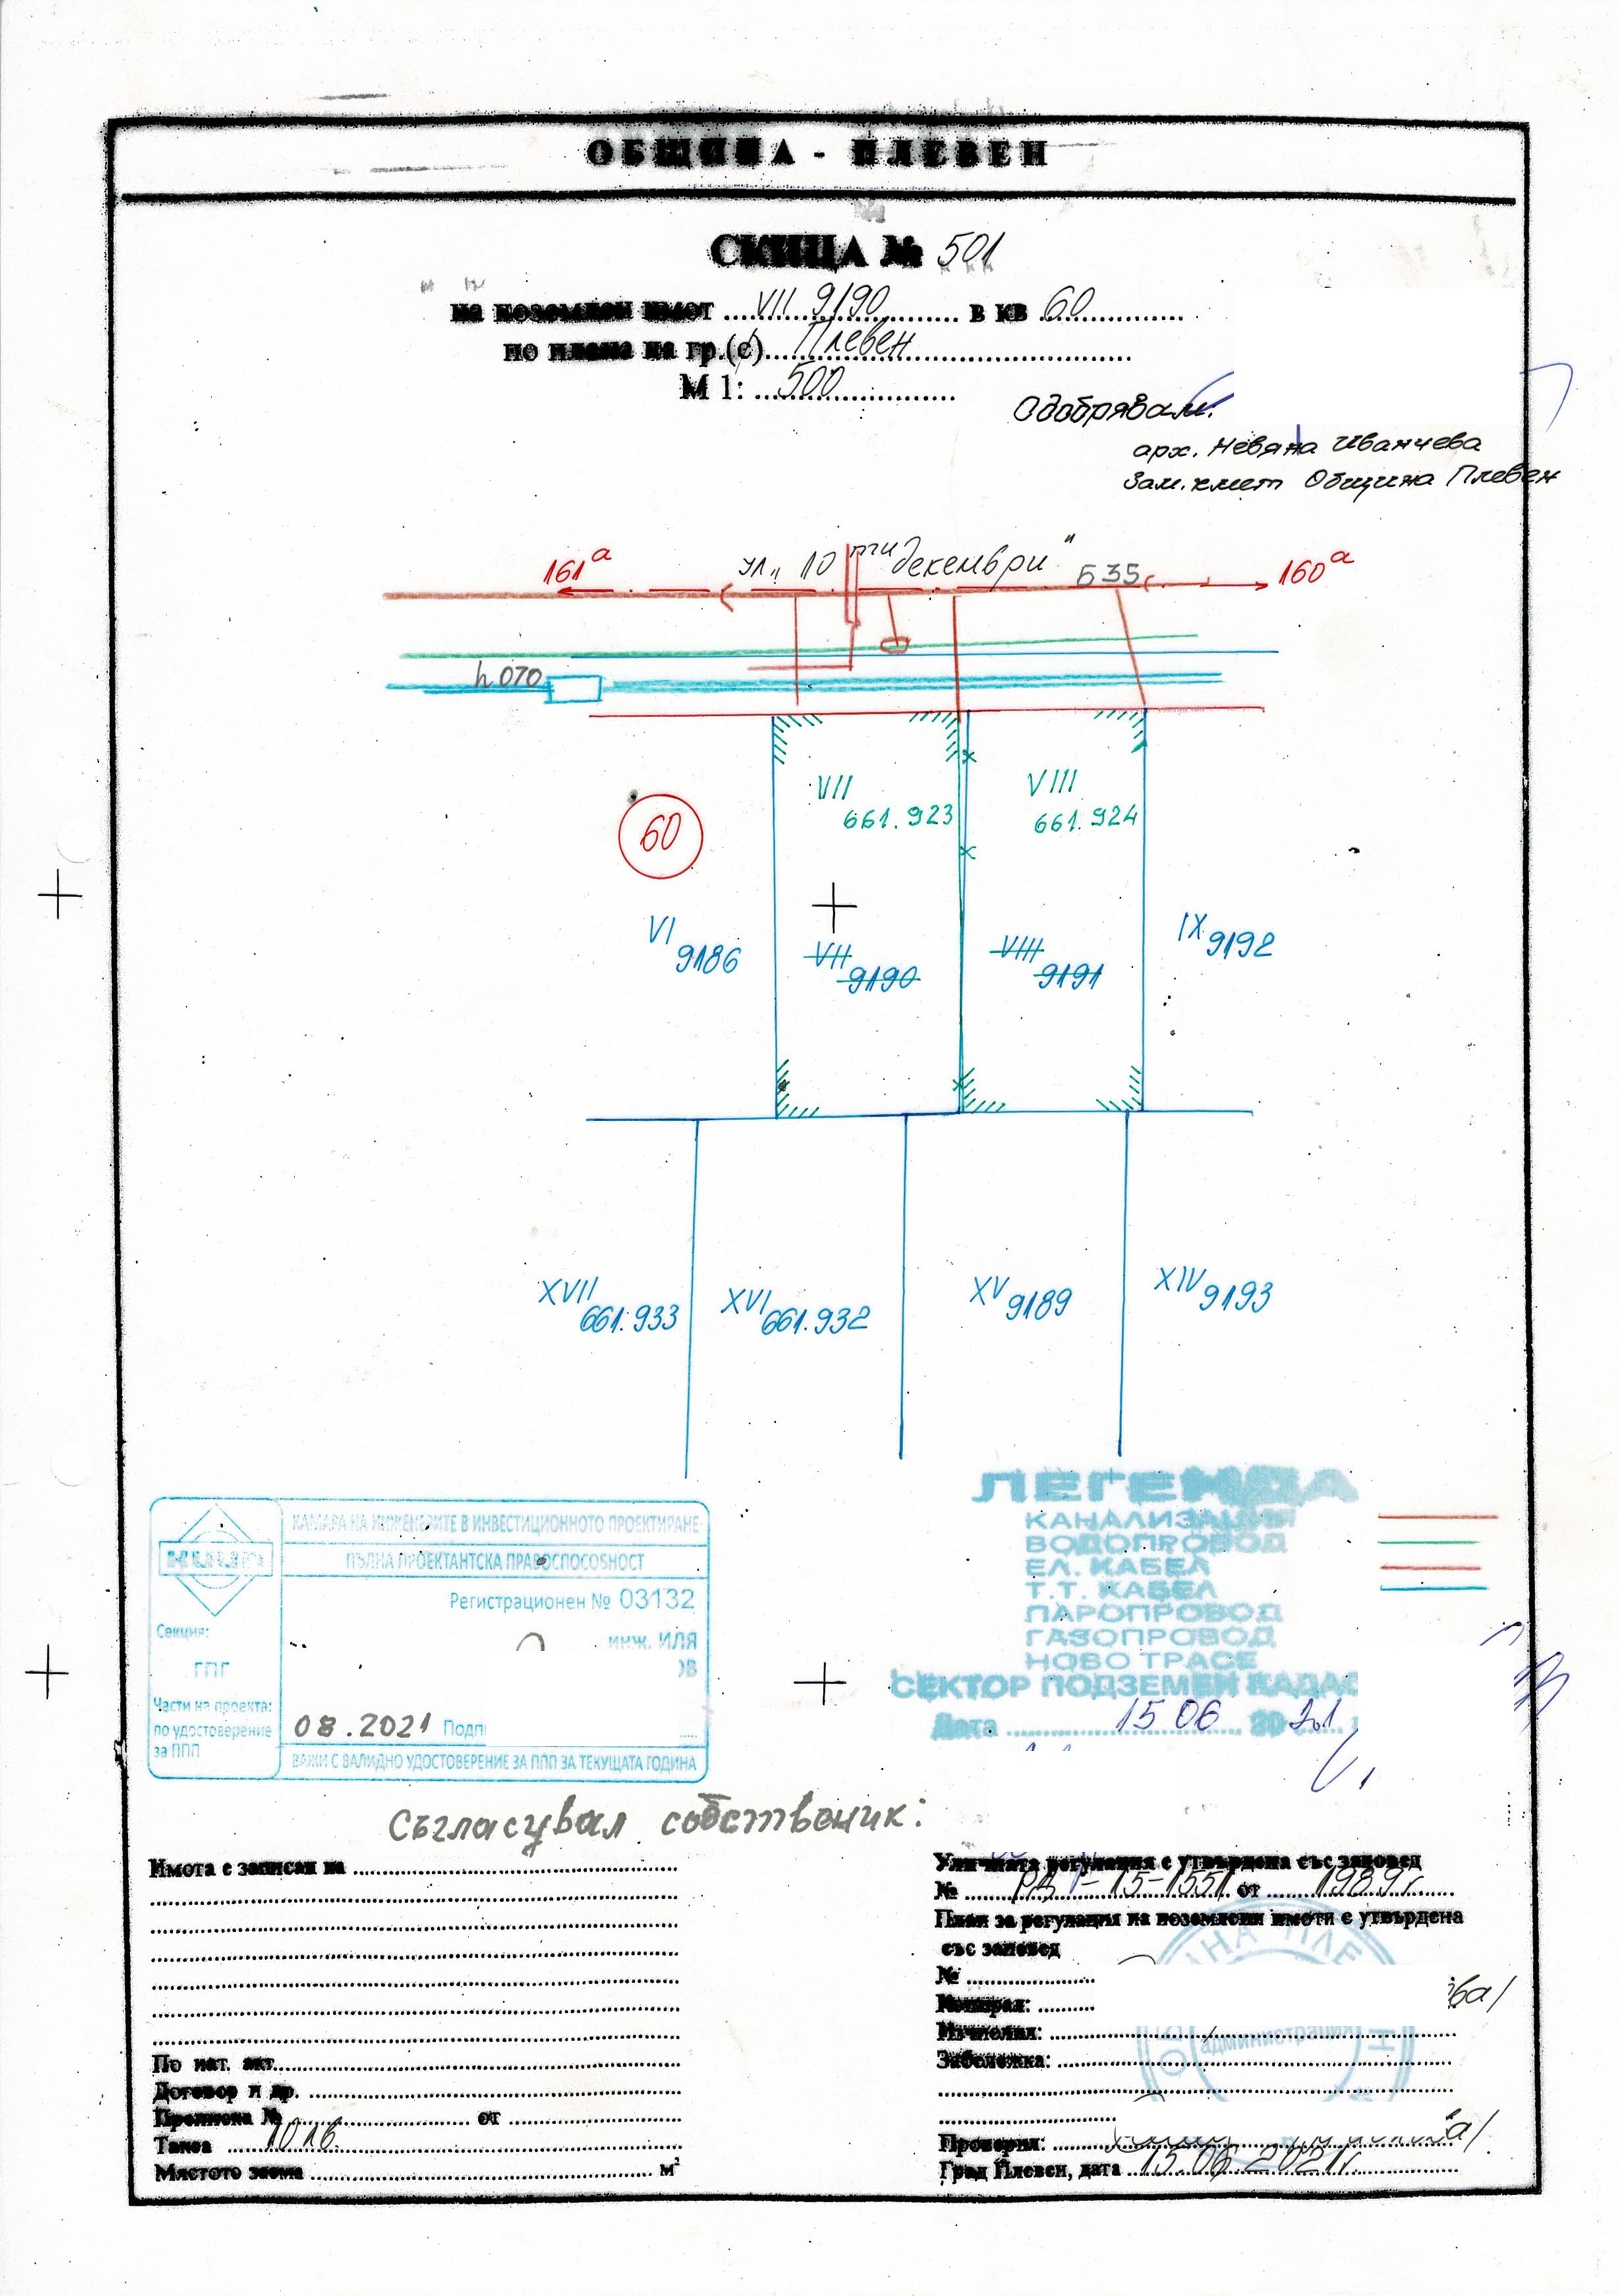 ОБЩИНА - ПЛЕВЕН
СКИЦА № 501
на поземлен имот VII 9190 в кв 60
по плана на гр.(с) Плевен
М 1: 500
Одобрявам:
арх. Невяна Иванчева
Зам. кмет Община Плевен
161а
ул. „10ти декември"
Б 35
160а
h 070
VII
661.923
VIII
661.924
60
VI 9186
VII 9190
VIII 9191
IX 9192
XVII 661.933
XVI 661.932
XV 9189
XIV 9193
КАМАРА НА ИНЖЕНЕРИТЕ В ИНВЕСТИЦИОННОТО ПРОЕКТИРАНЕ
ПЪЛНА ПРОЕКТАНТСКА ПРАВОСПОСОБНОСТ
Регистрационен № 03132
Секция:
ГПГ
инж. ИЛЯ
ОВ
Части на проекта:
по удостоверение
за ППП
08.2021 Подп
ВАЖИ С ВАЛИДНО УДОСТОВЕРЕНИЕ ЗА ППП ЗА ТЕКУЩАТА ГОДИНА
ЛЕГЕНДА
КАНАЛИЗАЦИЯ
ВОДОПРОВОД
ЕЛ. КАБЕЛ
Т.Т. КАБЕЛ
ПАРОПРОВОД
ГАЗОПРОВОД
НОВО ТРАСЕ
СЕКТОР ПОДЗЕМЕН КАДАС
Дата 15 06 2021
Съгласувал собственик:
Имота е записан на
По нот. акт
Договор и др.
Преписка № от
Такса 10 лв.
Мястото заема м²
Уличната регулация е утвърдена със заповед
№ РД-15-1551 от 1989г.
План за регулация на поземлени имоти е утвърдена
със заповед
№
Копирал: ва/
Изчислил:
Забележка:
администрация
Проверил: а/
Град Плевен, дата 15.06.2021г.